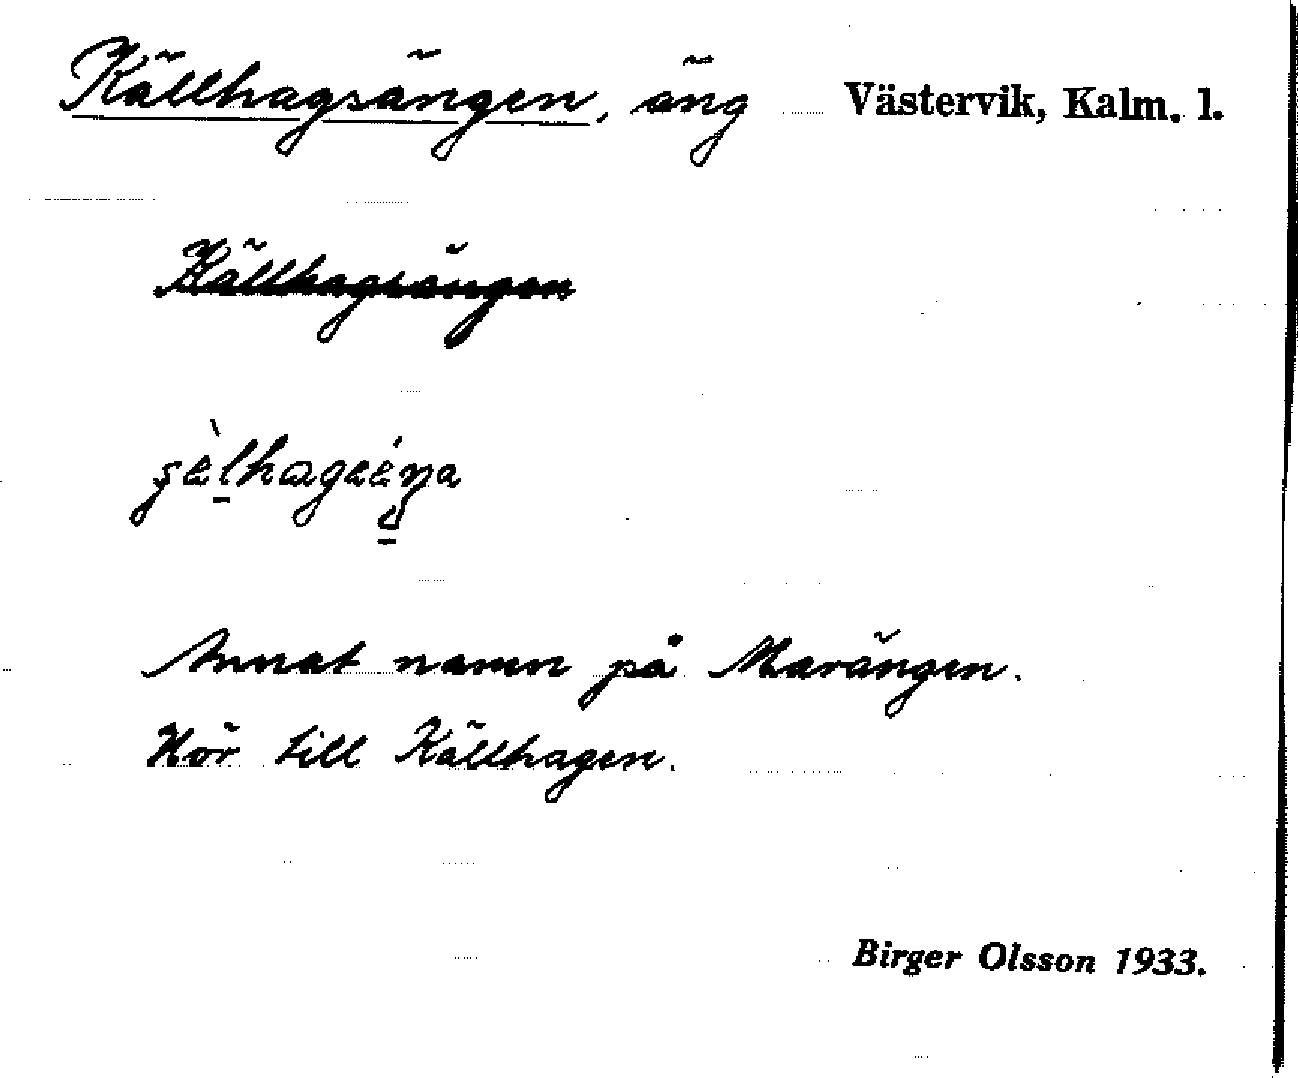 Källhagsängen, äng Västervik, Kalm. l.
Källhagsängen
Annat namn på Marängen.
Hör till Källhagen.
Birger Olsson 1933.